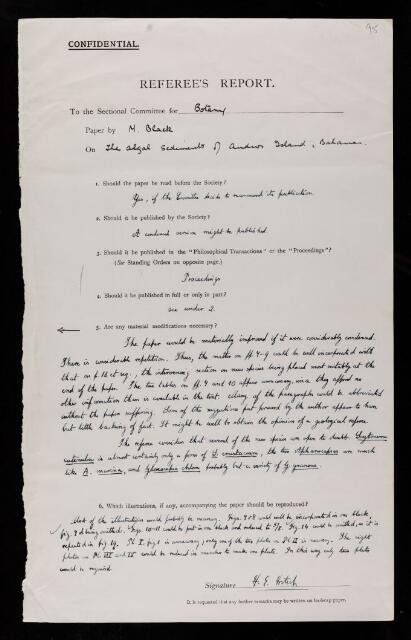 95
CONFIDENTIAL.
REFEREE'S REPORT.
To the Sectional Committee for Botany
Paper by M. Black
On The Algal Sediments of Andros Island, Bahamas.
1. Should the paper be read before the Society?
Yes, if the Committee decide to recommend its publication.
2. Should it be published by the Society?
A condensed version might be published.
3. Should it be published in the "Philosophical Transactions" or the "Proceedings"?
(See Standing Orders on opposite page.)
Proceedings
4. Should it be published in full or only in part?
see under 2.
5. Are any material modifications necessary?
The paper would be materially improved if it were considerably condensed.
There is considerable repetition. Thus, the matter on pp. 4-9 could be well incorporated with
that on p. 18 et seq., the intervening section on new species being placed most suitably at the
end of the paper. The two tables on pp. 9 and 10 appear unnecessary, since they afford no
other information than is available in the text. Many of the paragraphs could be abbreviated
without the paper suffering. Some of the suggestions put forward by the author appear to have
but little backing of fact. It might be well to obtain the opinion of a geological referee.
The referee considers that several of the new species are open to doubt.
is almost certainly only a form of the two Aphanocapsas are much
like A. marina, and Gloeocapsa probably but a variety of G.
6. Which illustrations, if any, accompanying the paper should be reproduced?
Most of the illustrations would probably be necessary. Figs. 7+8 could well be incorporated in one block,
fig. 9 being omitted. Figs. 10-11 could be put in one block and reduced to 2/3. Fig. 14 could be omitted, as it is
repeated in fig. 19. Pl. I, fig. 1 is unnecessary; only one of the two photos on Pl. II is necessary. The eight
photos on Pl. III and IV could be reduced in number to make one plate. In this way only two plates
would be required.
Signature F. E. Fritsch
It is requested that any further remarks may be written on foolscap paper.